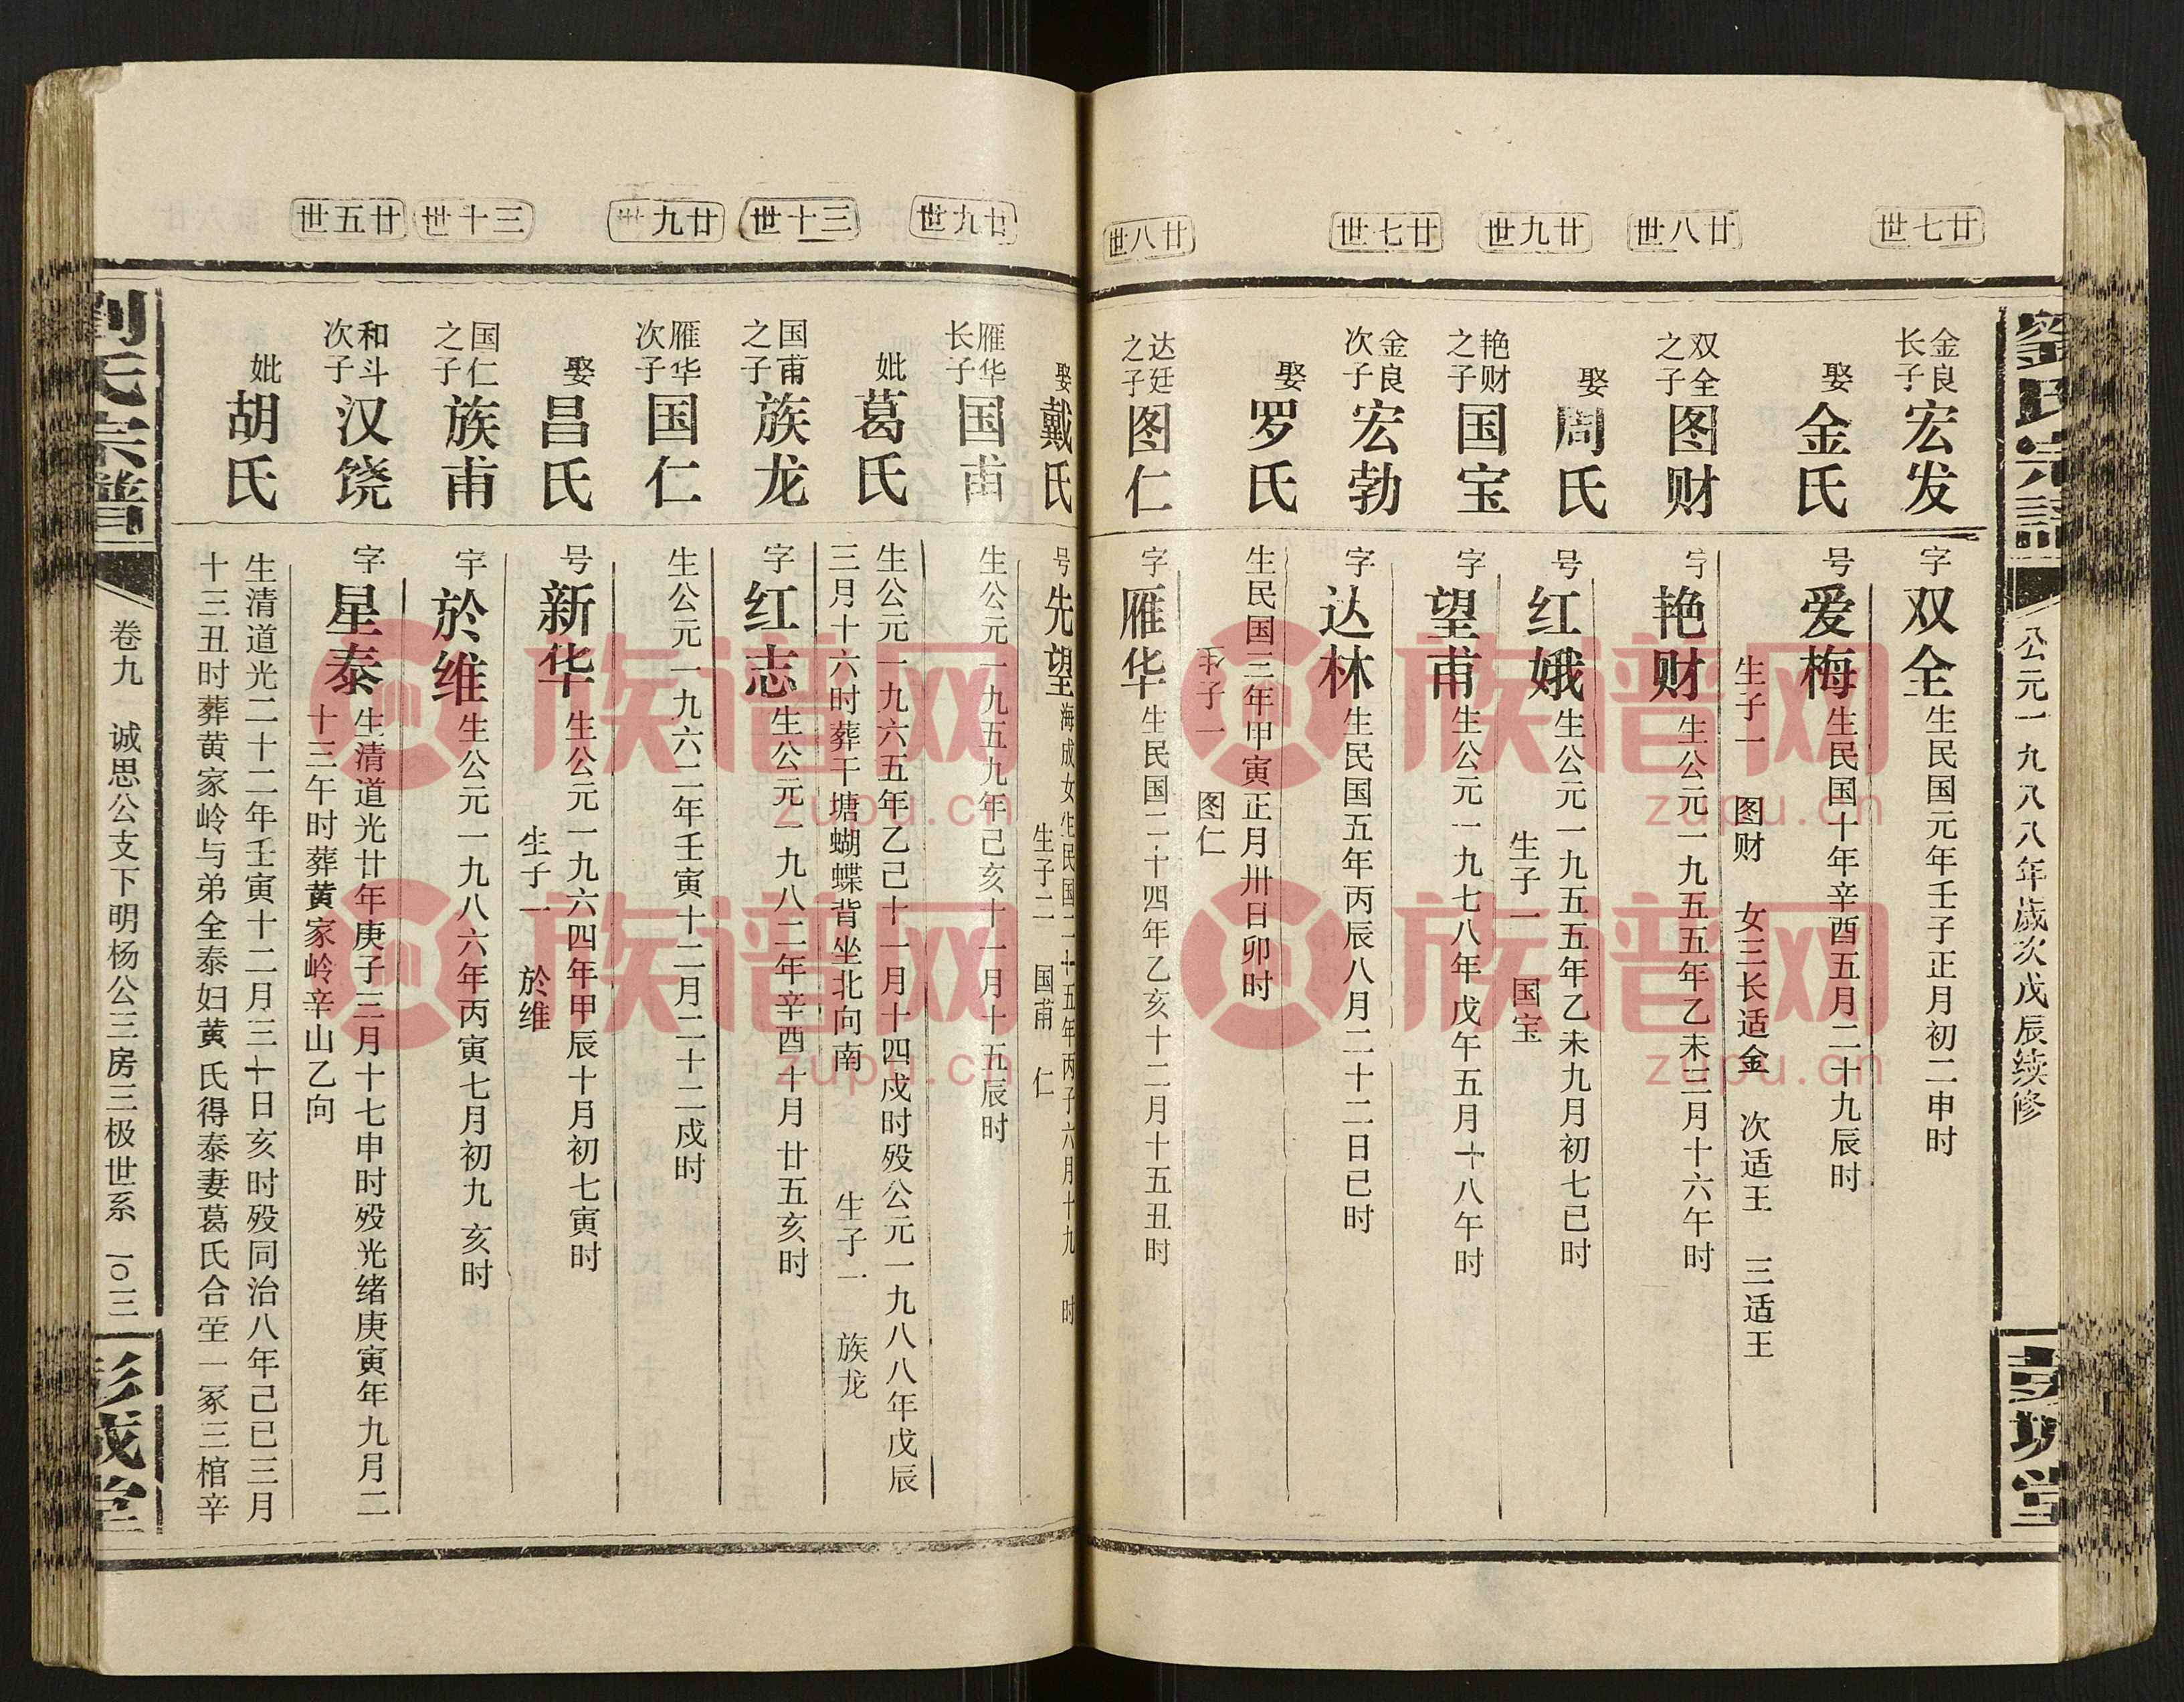 劉氏宗譜
公元一九八八年歲次戊辰续修
彭城堂
廿七世
金良长子
宏发
字双全 生民国元年壬子正月初二申时
娶金氏
号爱梅 生民国十年辛酉五月二十九辰时
生子一 图财 女三长适金 次适王 三适王
廿八世
双全之子
图财
字艳财 生公元一九五五年乙未三月十六午时
娶周氏
号红娥 生公元一九五五年乙未九月初七巳时
生子一 国宝
廿九世
艳财之子
国宝
字望甫 生公元一九七八年戊午五月十八午时
廿七世
金良次子
宏勃
字达林 生民国五年丙辰八月二十二日巳时
娶罗氏
生民国三年甲寅正月卅日卯时
子一 图仁
廿八世
达廷之子
图仁
字雁华 生民国二十四年乙亥十二月十五丑时
娶戴氏
号先望 海成女生民国二十五年丙子六月十九 时
生子二 国甫 仁
廿九世
雁华长子
国甫
生公元一九五九年己亥十一月十五辰时
妣葛氏
生公元一九六五年乙己十一月十四戍时殁公元一九八八年戊辰
三月十六时葬干塘蝴蝶背坐北向南 生子一 族龙
三十世
国甫之子
族龙
字红志 生公元一九八二年辛酉十月廿五亥时
廿九世
雁华次子
国仁
生公元一九六二年壬寅十二月二十二戍时
娶昌氏
号新华 生公元一九六四年甲辰十月初七寅时
生子一 於维
三十世
国仁之子
族甫
字於维 生公元一九八六年丙寅七月初九亥时
廿五世
和斗次子
汉饶
字星泰 生清道光廿年庚子三月十七申时殁光绪庚寅年九月二
十三午时葬黄家岭辛山乙向
妣胡氏
生清道光二十二年壬寅十二月三十日亥时殁同治八年己巳三月
十三丑时葬黄家岭与弟全泰妇黄氏得泰妻葛氏合茔一冢三棺辛
劉氏宗譜
卷九 诚思公支下明杨公三房三极世系 一〇三
彭城堂
族谱网
zupu.cn
族谱网
zupu.cn
族谱网
zupu.cn
族谱网
zupu.cn